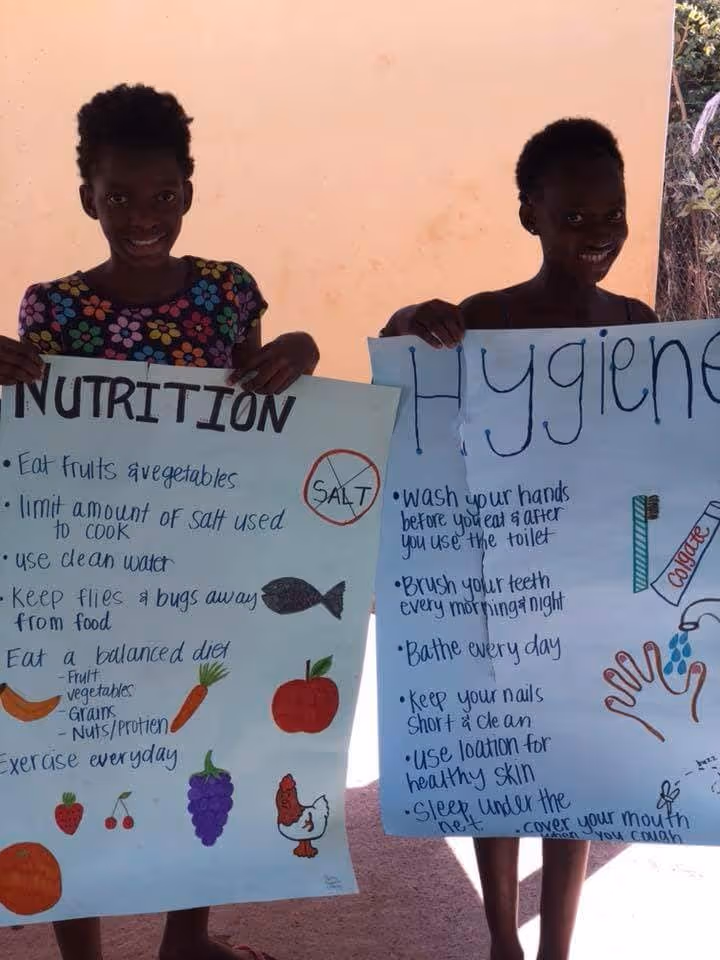 NUTRITION
• Eat fruits & vegetables
• limit amount of salt used
to cook
• use clean water
• Keep flies & bugs away
from food
Eat a balanced diet
- Fruit
vegetables
- Grains
- Nuts/Protien
Exercise everyday
SALT
Hygiene
• Wash your hands
before you eat & after
you use the toilet
• Brush your teeth
every morning & night
• Bathe every day
• Keep your nails
short & clean
• use loation for
healthy skin
• Sleep under the
net
• cover your mouth
when you cough
Colgate
buzz